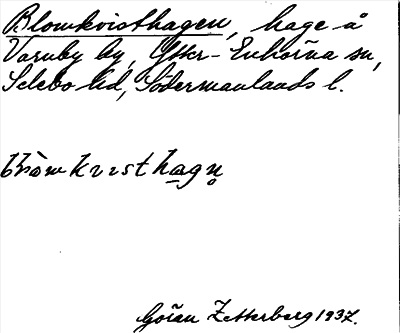 Blomkvisthagen, hage å
Varnby by, Ytter-Enhörna sn,
Selebo hd, Södermanlands l.
Göran Zetterberg 1937.